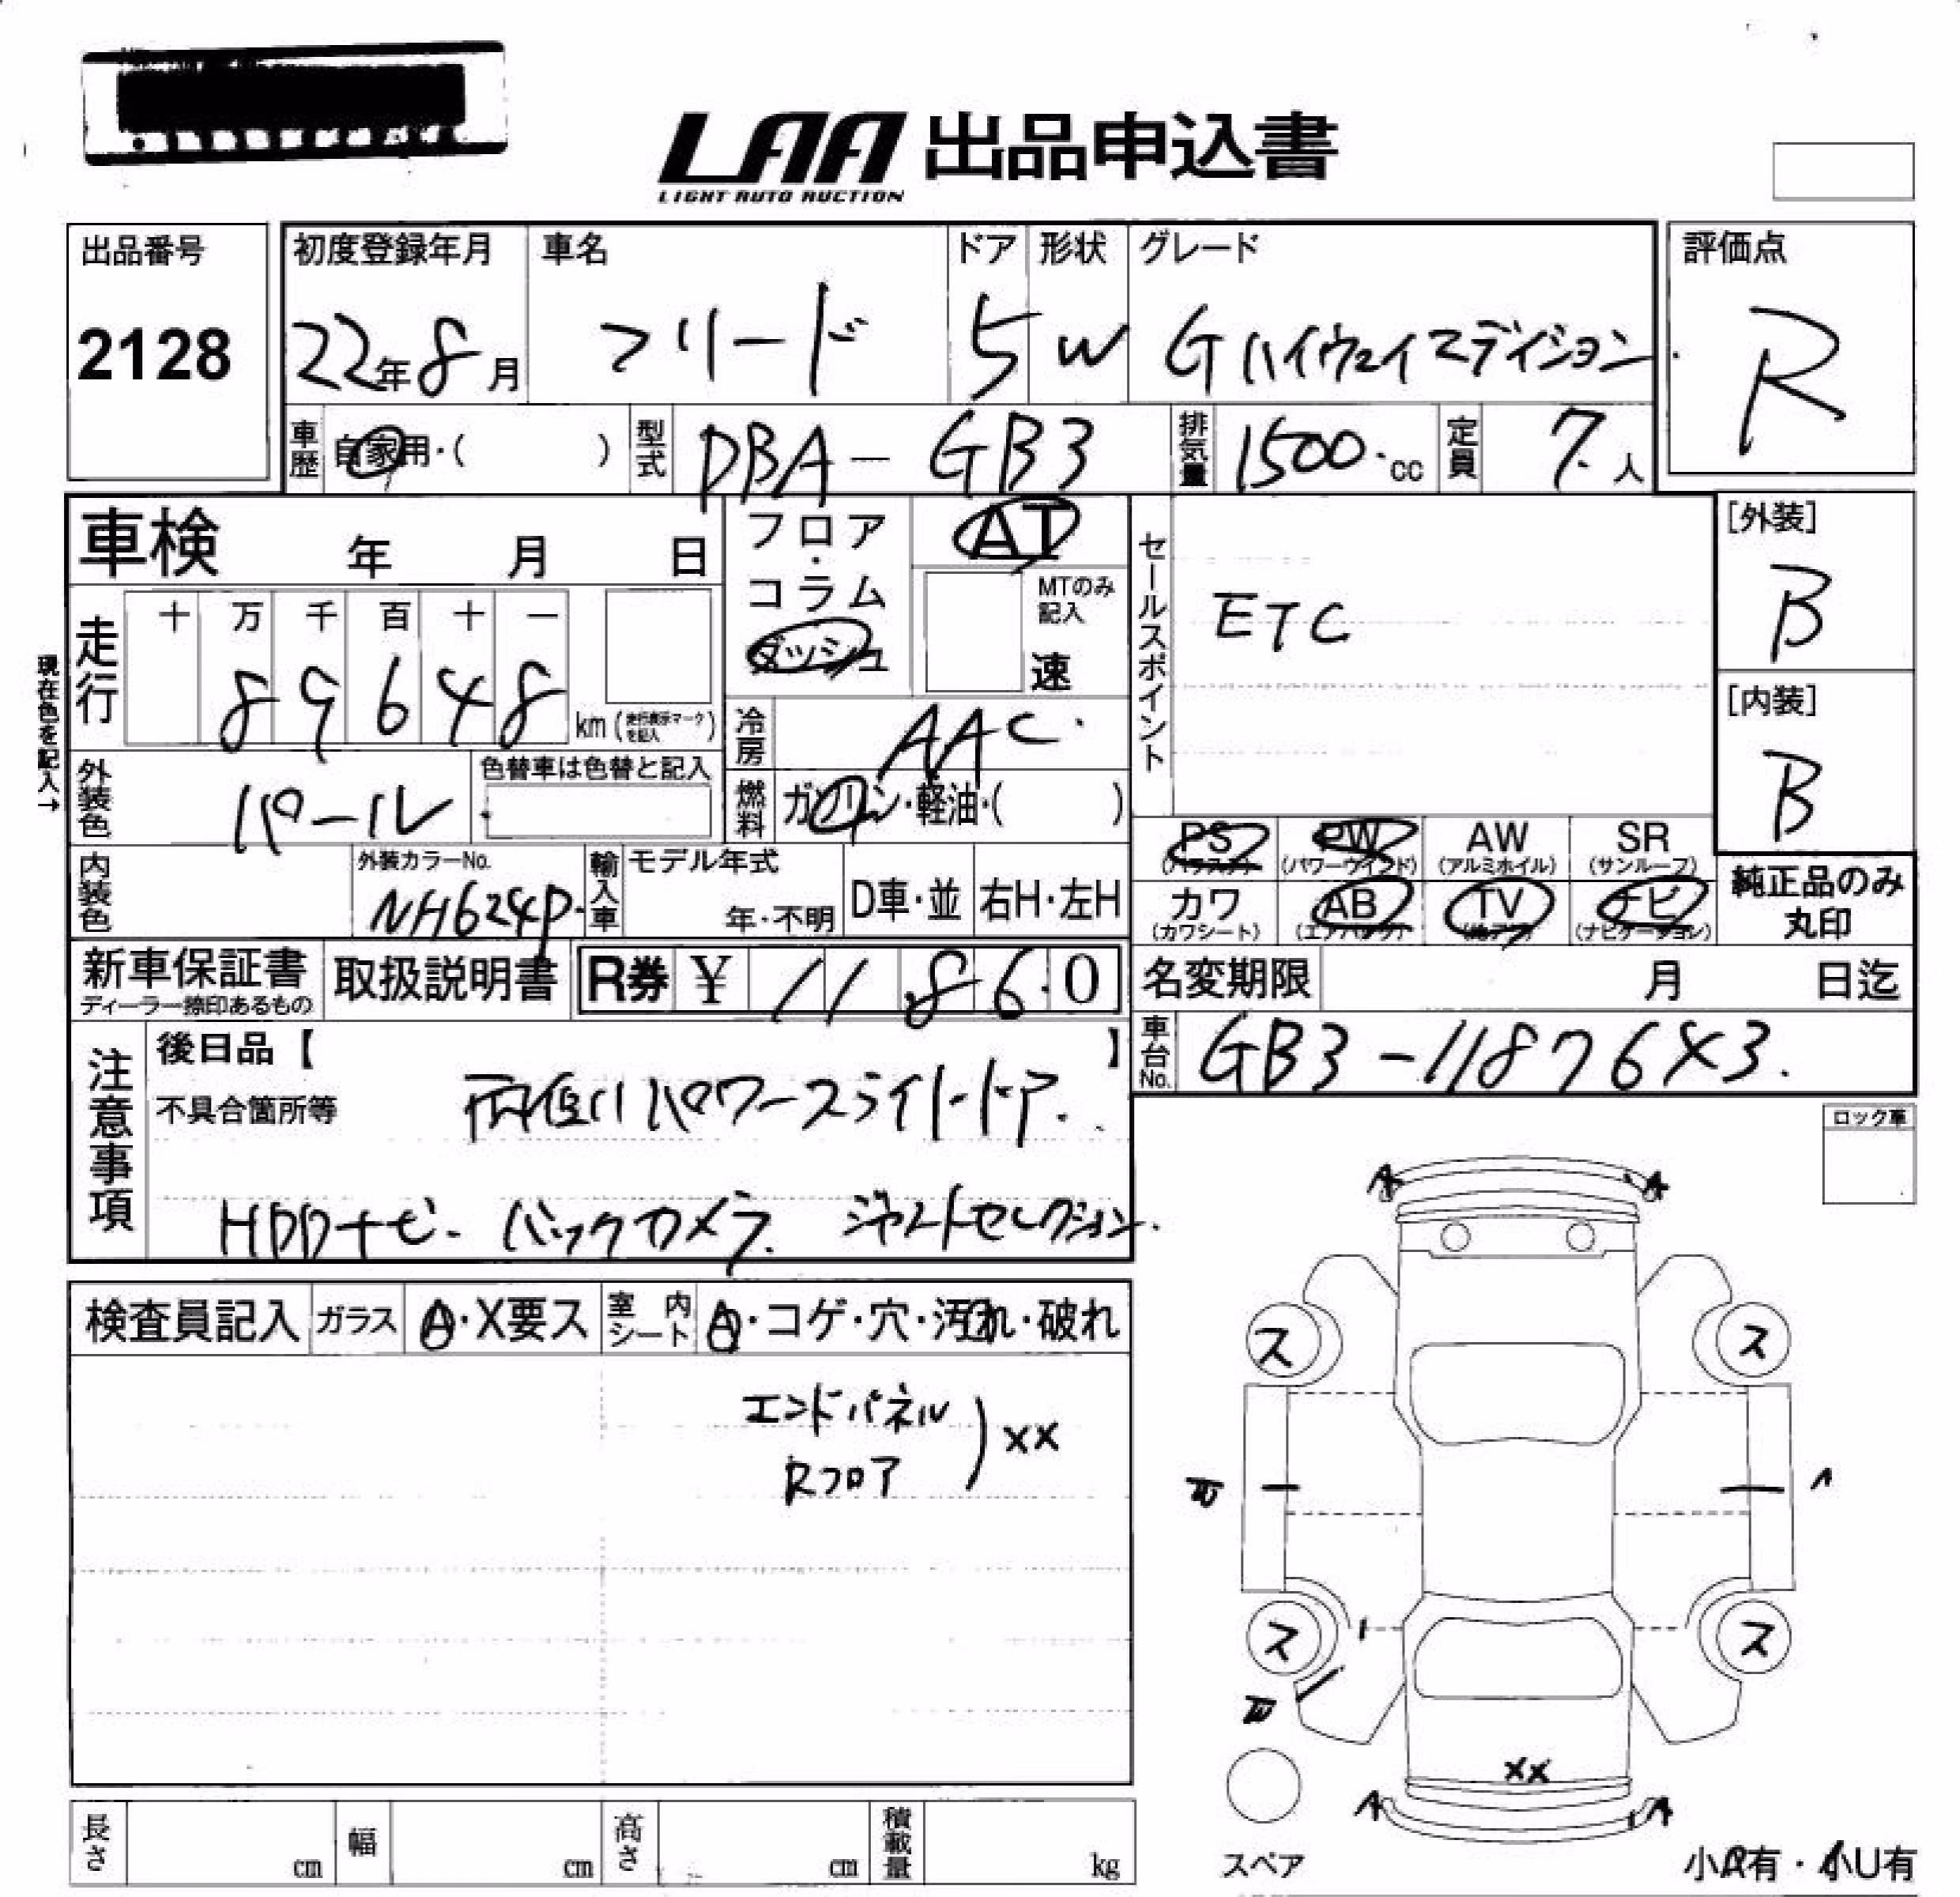 LAA 出品申込書
LIGHT AUTO AUCTION
出品番号
2128
初度登録年月
22年8月
車名
フリード
ドア
5
形状
W
グレード
Gハイウェイエディション
評価点
R
車歴
自家用・( )
型式
DBA-GB3
排気量
1500.cc
定員
7.人
車検 年 月 日
フロア・コラム
ダッシュ
AT
MTのみ記入
速
セールスポイント
ETC
[外装]
B
[内装]
B
現在色を記入→
走行
十 万 千 百 十 一
8 9 6 4 8
km(走行表示マークを記入)
冷房
AAC.
燃料
ガソリン・軽油・( )
外装色
パール
色替車は色替と記入
内装色
外装カラーNo.
NH624P.
輸入車
モデル年式
年・不明
D車・並
右H・左H
PS
(パワステ)
PW
(パワーウインド)
AW
(アルミホイル)
SR
(サンルーフ)
カワ
(カワシート)
AB
(エアバック)
TV
ナビ
(ナビゲーション)
純正品のみ
丸印
新車保証書
ディーラー捺印あるもの
取扱説明書
R券 ¥ 11,860
名変期限 月 日迄
車台No.
GB3-1187643.
注意事項
後日品【 】
不具合箇所等
両側パワースライドドア.
HDDナビ- バックカメラ. ジャストセレクション.
ロック車
検査員記入
ガラス
A・X要ス
室内シート
A・コゲ・穴・汚れ・破れ
エンドパネル
Rフロア
)XX
A
A
ス
ス
ス
ス
XX
A
A
スペア
長さ cm
幅 cm
高さ cm
積載量 kg
小A有・小U有